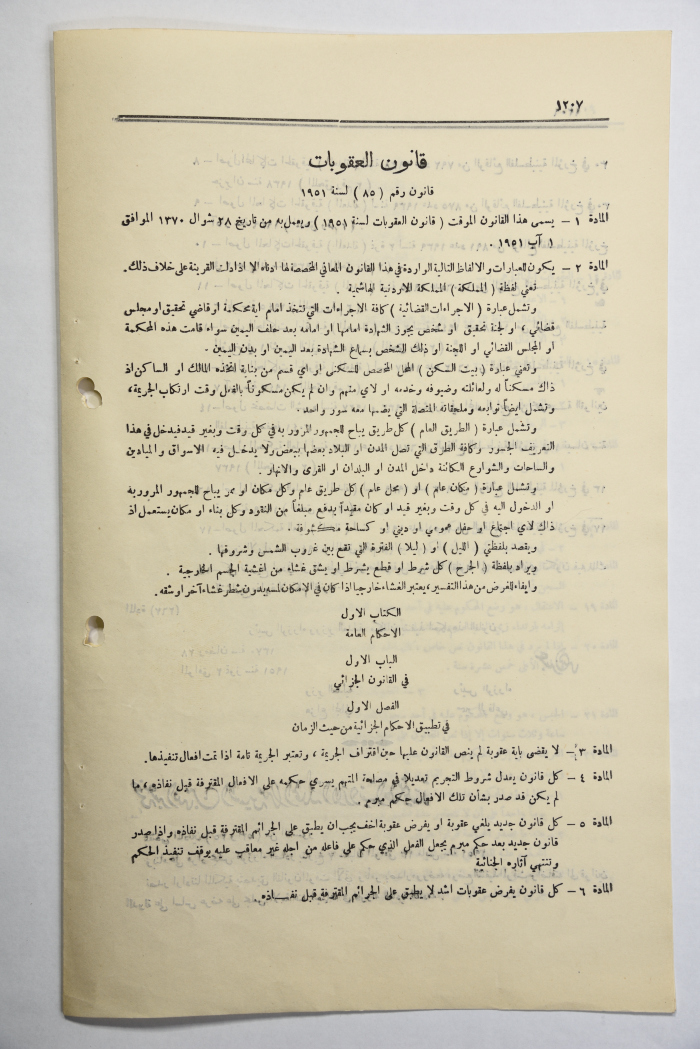 ١٢٠٧
قانون العقوبات
قانون رقم ( ٨٥ ) لسنة ١٩٥١
المادة ١ – يسمى هذا القانون الموقت ( قانون العقوبات لسنة ١٩٥١ ) ويعمل به من تاريخ ٢٨ شوال ١٣٧٠ الموافق
١ آب ١٩٥١ .
المادة ٢ – يكون للعبارات والالفاظ التالية الواردة في هذا القانون المعاني المخصصة لها ادناه الا اذا دلت القرينة على خلاف ذلك .
تعني لفظة ( المملكة ) المملكة الاردنية الهاشمية .
وتشمل عبارة ( الاجراءات القضائية ) كافة الاجراءات التي تتخذ امام اية محكمة او قاضي تحقيق او مجلس
قضائي ، او لجنة تحقيق او شخص يجوز الشهادة امامها او امامه بعد حلف اليمين سواء قامت هذه المحكمة
او المجلس القضائي او اللجنة او ذلك الشخص بسماع الشهادة بعد اليمين او بدون اليمين .
وتعني عبارة ( بيت السكن ) المحل المخصص للسكنى او اي قسم من بناية اتخذه المالك او الساكن اذ
ذاك مسكناً له ولعائلته وضيوفه وخدمه او لاي منهم وان لم يكن مسكوناً بالفعل وقت ارتكاب الجريمة ،
وتشمل ايضاً توابعه وملحقاته المتصلة التي يضمها معه سور واحد .
وتشمل عبارة ( الطريق العام ) كل طريق يباح للجمهور المرور به في كل وقت وبغير قيد فيدخل في هذا
التعريف الجسور وكافة الطرق التي تصل المدن او البلاد بعضها ببعض ولا يدخل فيه الاسواق والميادين
والساحات والشوارع الكائنة داخل المدن او البلدان او القرى والانهار .
وتشمل عبارة ( مكان عام ) او ( محل عام ) كل طريق عام وكل مكان او ممر يباح للجمهور المرور به
او الدخول اليه في كل وقت وبغير قيد او كان مقيداً بدفع مبلغاً من النقود وكل بناء او مكان يستعمل اذ
ذاك لاي اجتماع او حفل عمومي او ديني او كساحة مكشوفة .
ويقصد بلفظتي ( الليل ) او ( ليلا ) الفترة التي تقع بين غروب الشمس وشروقها .
ويراد بلفظة ( الجرح ) كل شرط او قطع يشرط او يشق غشاء من اغشية الجسم الخارجية .
وايفاء للغرض من هذا التفسير ، يعتبر الغشاء خارجيا اذا كان في الامكان لمسه بدون شطر غشاء آخر او شقه .
الكتاب الاول
الاحكام العامة
الباب الاول
في القانون الجزائي
الفصل الاول
في تطبيق الاحكام الجزائية من حيث الزمان
المادة ٣ – لا يقضى باية عقوبة لم ينص القانون عليها حين اقتراف الجريمة ، وتعتبر الجريمة تامة اذا تمت افعال تنفيذها .
المادة ٤ – كل قانون يعدل شروط التجريم تعديلا في مصلحة المتهم يسري حكمه على الافعال المقترفة قبل نفاذه ، ما
لم يكن قد صدر بشأن تلك الافعال حكم مبرم .
المادة ٥ – كل قانون جديد يلغي عقوبة او يفرض عقوبة اخف يجب ان يطبق على الجرائم المقترفة قبل نفاذه واذا صدر
قانون جديد بعد حكم مبرم يجعل الفعل الذي حكم على فاعله من اجله غير معاقب عليه يوقف تنفيذ الحكم
وتنتهي آثاره الجنائية
المادة ٦ – كل قانون يفرض عقوبات اشد لا يطبق على الجرائم المقترفة قبل نفـــاذه .